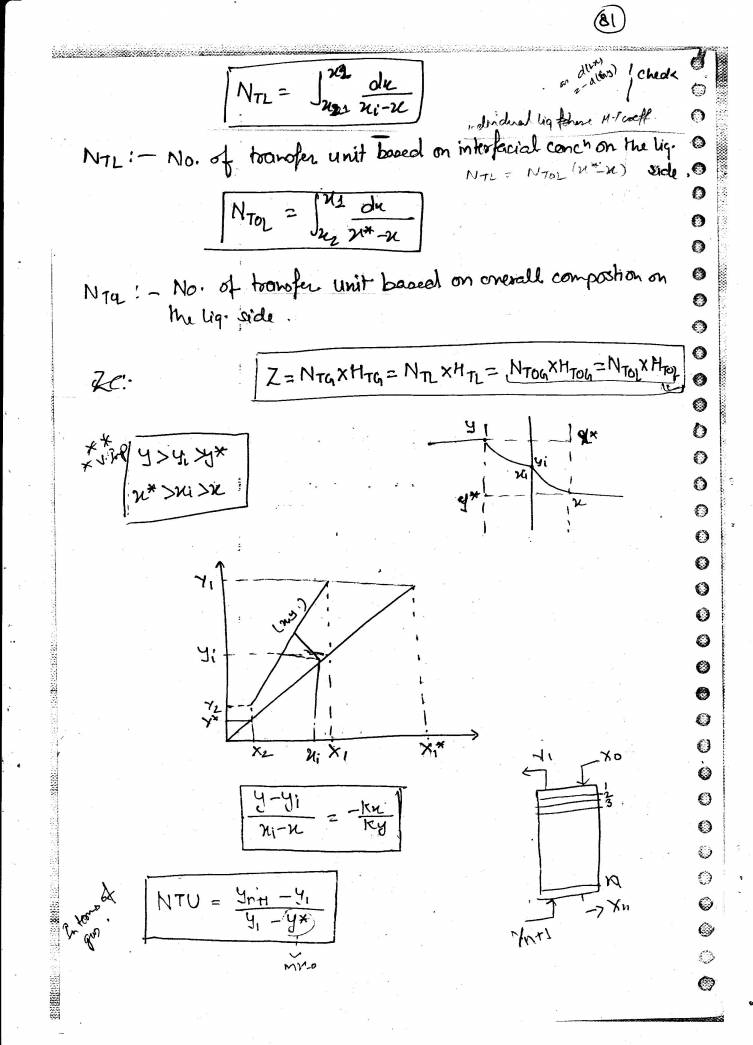 81
N_TL = ∫_{x2}^{x1} dx / (xi-x)
check
individual liq phase M.T coeff.
N_TL :- No. of transfer unit based on interfacial concn on the liq.
N_TL = N_TOL (x*-x) side.
N_TOL = ∫_{x2}^{x1} dx / (x*-x)
N_TOL :- No. of transfer unit based on overall compostion on
the liq. side.
Z = N_TG × H_TG = N_TL × H_TL = N_TOG × H_TOG = N_TOL × H_TOL
** * V. Imp
y > yi > y*
x* > xi > x
y x*
xi yi
y* x
Y1
(x,y)
yi
Y2
Y*
X2 xi X1 X1*
(y-yi) / (xi-x) = -kx / ky
Y1 X0
1
2
3
N
Yn+1 → Xn
In terms of
gas.
NTU = (yn+1 - y1) / (y1 - y*)
mx0